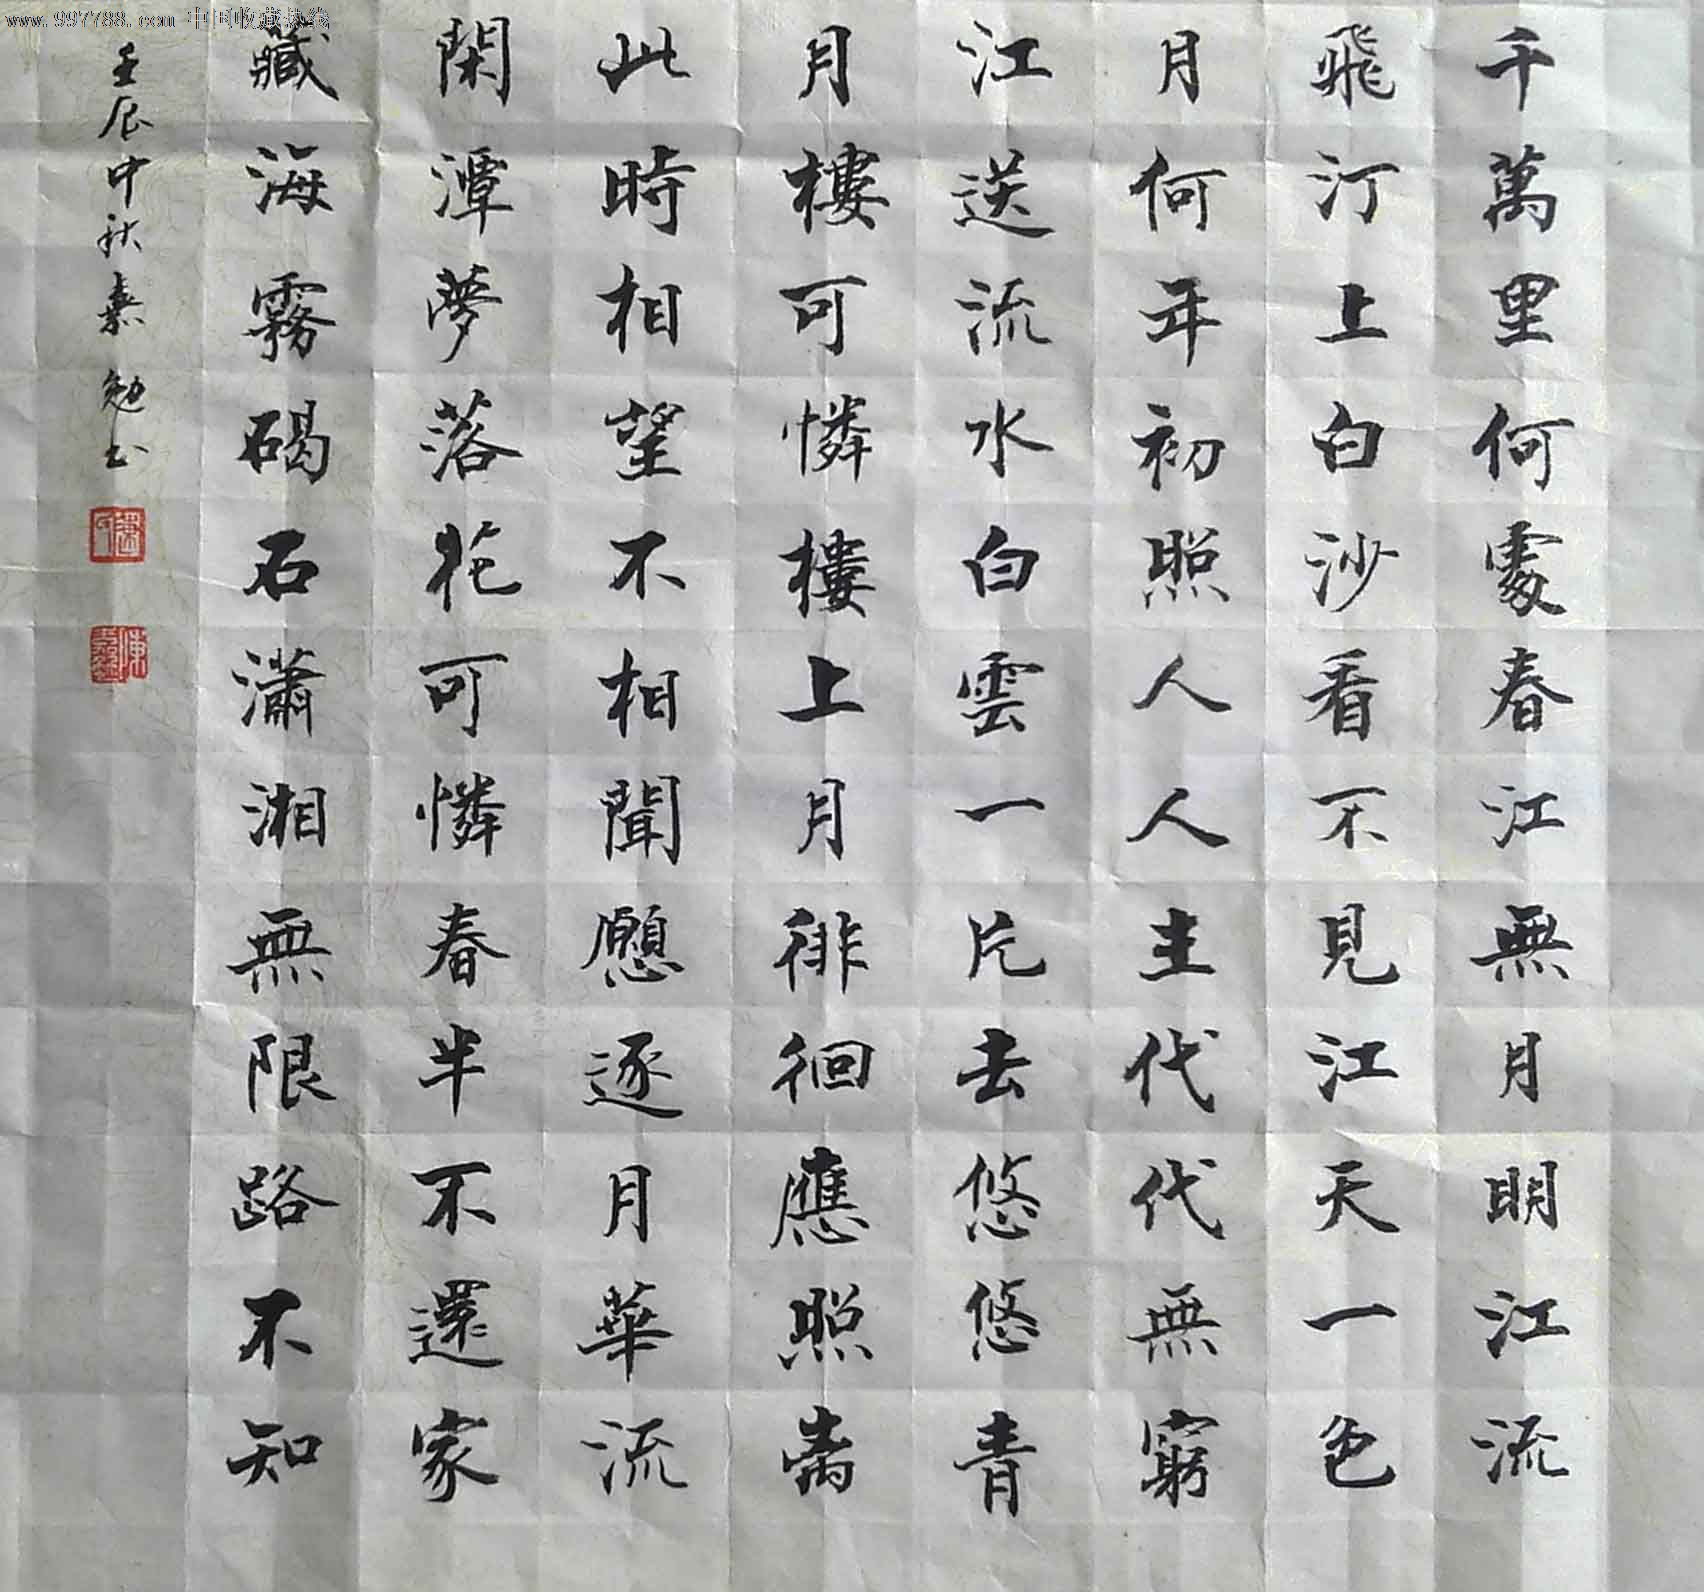 www.997788.com 中国收藏热线
千萬里何處春江無月明江流
飛汀上白沙看不見江天一色
月何年初照人人主代代無窮
江送流水白雲一片去悠悠青
月樓可憐樓上月徘徊應照离
此時相望不相聞願逐月華流
閑潭夢落花可憐春半不還家
藏海霧碣石瀟湘無限路不知
壬辰中秋 勉书